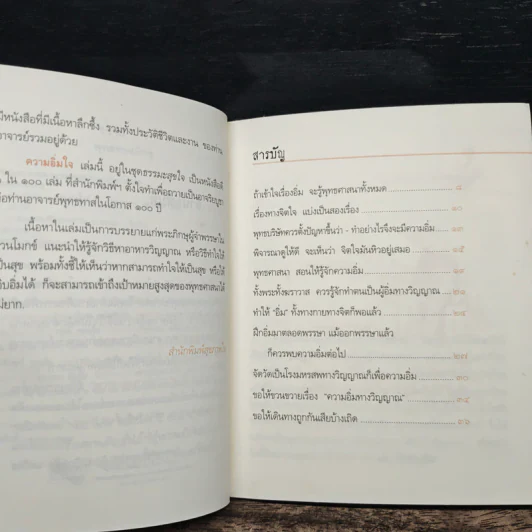 มีหนังสือที่มีเนื้อหาลึกซึ้ง รวมทั้งประวัติชีวิตและงาน ของท่าน
อาจารย์รวมอยู่ด้วย
ความอิ่มใจ เล่มนี้ อยู่ในชุดธรรมะสุขใจ เป็นหนังสือดี
ใน ๑๐๐ เล่ม ที่สำนักพิมพ์ฯ ตั้งใจทำเพื่อถวายเป็นอาจริยบูชา
ต่อท่านอาจารย์พุทธทาสในโอกาส ๑๐๐ ปี
เนื้อหาในเล่มเป็นการบรรยายแก่พระภิกษุผู้จำพรรษาใน
สวนโมกข์ แนะนำให้รู้จักวิธีหาอาหารวิญญาณ หรือวิธีทำใจให้
เป็นสุข พร้อมทั้งชี้ให้เห็นว่าหากสามารถทำใจให้เป็นสุข หรือให้
อิ่มได้ ก็จะสามารถเข้าถึงเป้าหมายสูงสุดของพุทธศาสนาได้
ไม่ยาก.
สำนักพิมพ์สุขภาพใจ
สารบัญ
ถ้าเข้าใจเรื่องอิ่ม จะรู้พุทธศาสนาทั้งหมด
เรื่องทางจิตใจ แบ่งเป็นสองเรื่อง ๑๐
พุทธบริษัทควรตั้งปัญหาขึ้นว่า - ทำอย่างไรจึงจะมีความอิ่ม ๑๓
พิจารณาดูให้ดี จะเห็นว่า จิตใจมันหิวอยู่เสมอ ๑๕
พุทธศาสนา สอนให้รู้จักความอิ่ม
ทั้งพระทั้งฆราวาส ควรรู้จักทำตนเป็นผู้อิ่มทางวิญญาณ ๒๐
ทำให้ "อิ่ม" ทั้งทางกายทางจิตก็พอแล้ว ๒๔
ฝึกอิ่มมาตลอดพรรษา แม้ออกพรรษาแล้ว
ก็ควรพบความอิ่มต่อไป ๒๗
จัดวัดเป็นโรงมหรสพทางวิญญาณก็เพื่อความอิ่ม ๓๐
ขอให้ขวนขวายเรื่อง "ความอิ่มทางวิญญาณ" ๓๔
ขอให้เดินทางถูกกันเสียบ้างเถิด ๓๖